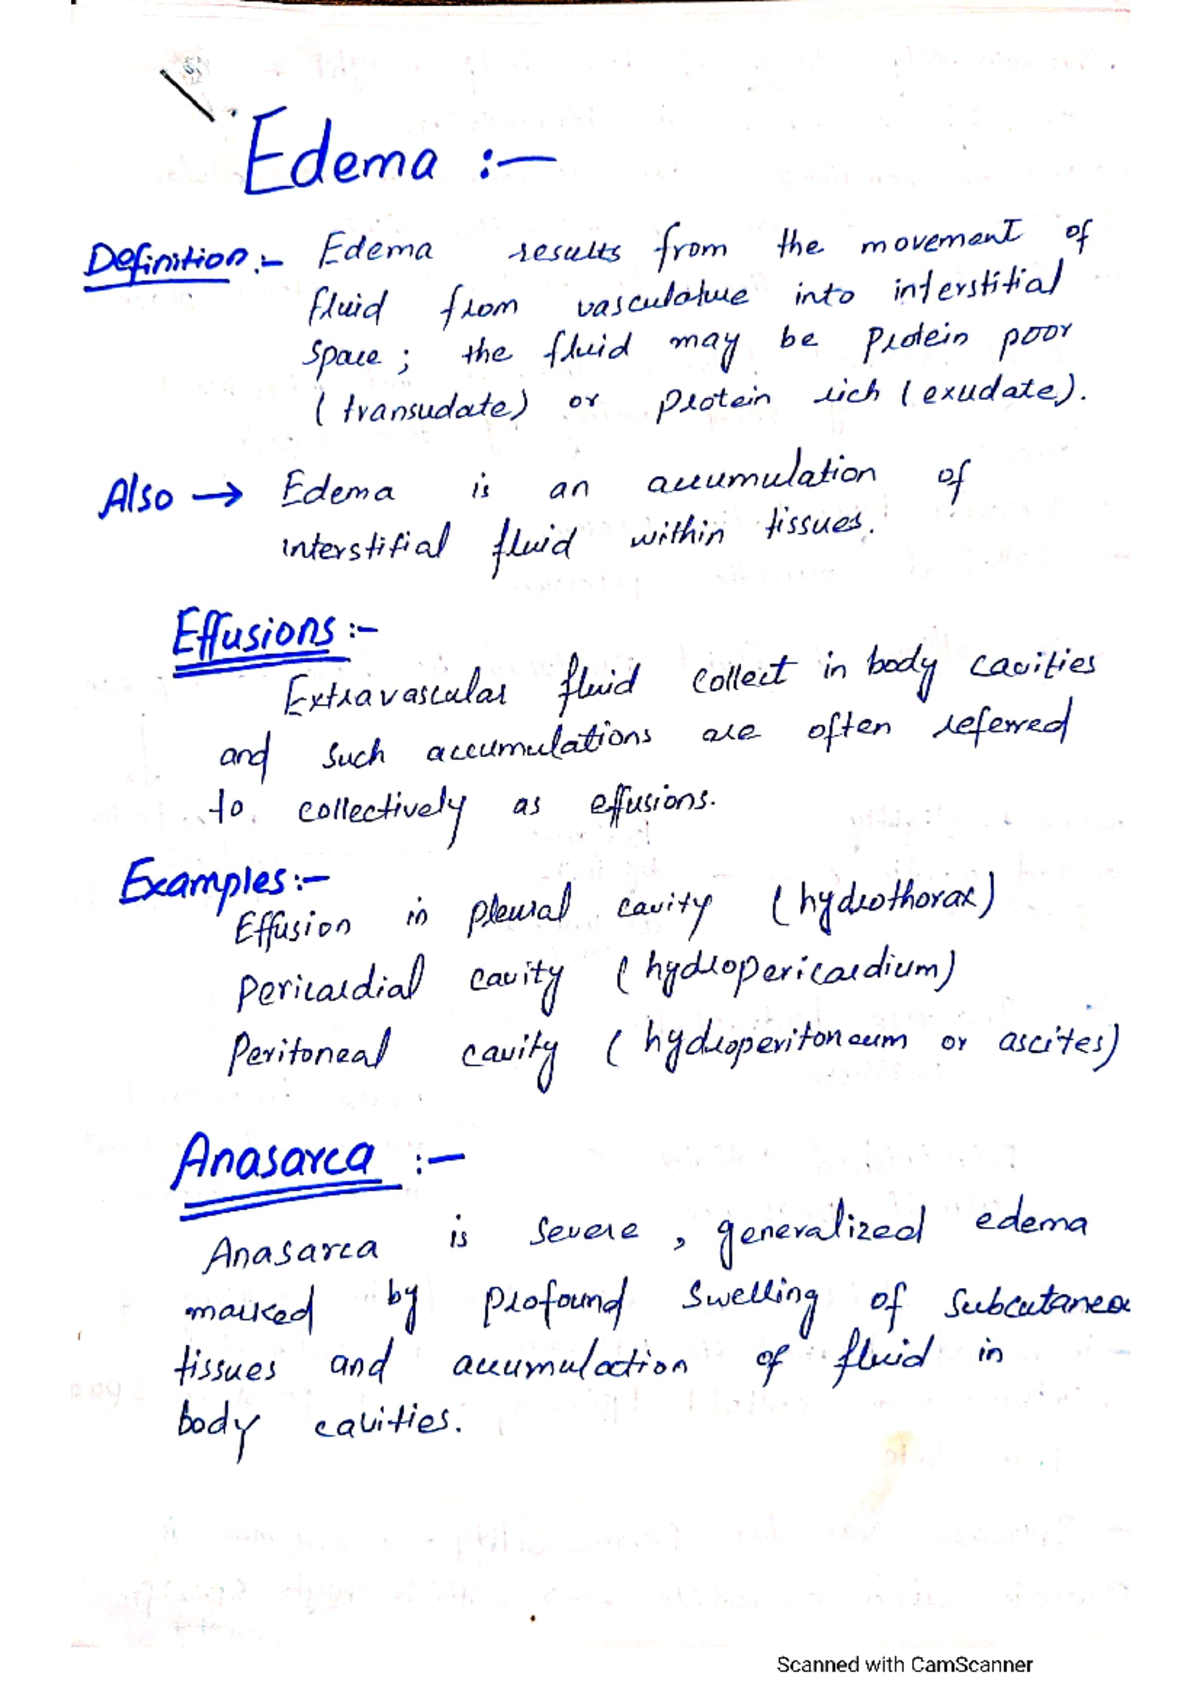 Edema :-
Definition :- Edema results from the movement of
fluid from vasculature into interstitial
space ; the fluid may be protein poor
( transudate) or protein rich ( exudate).
Also → Edema is an accumulation of
interstitial fluid within tissues.
Effusions :-
Extravascular fluid collect in body cavities
and such accumulations are often referred
to collectively as effusions.
Examples :-
Effusion in pleural cavity ( hydrothorax)
Pericardial cavity ( hydropericardium)
Peritoneal cavity ( hydroperitoneum or ascites)
Anasarca :-
Anasarca is severe , generalized edema
marked by profound swelling of subcutaneo
tissues and accumulation of fluid in
body cavities.
Scanned with CamScanner